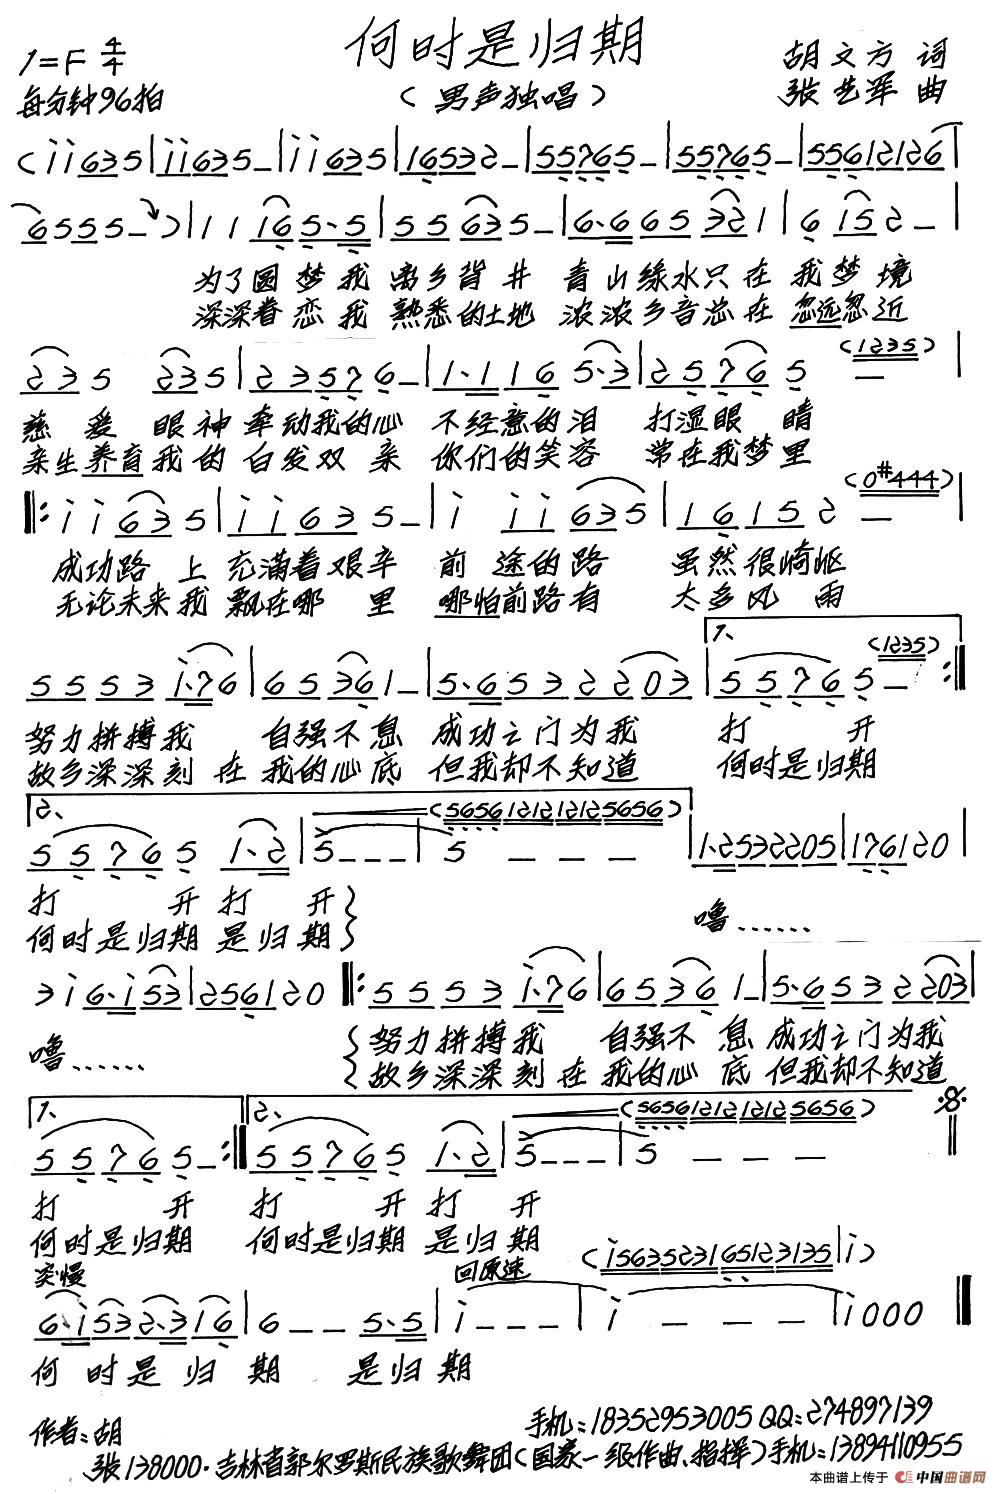 何时是归期
1=F 4/4
胡文方 词
每分钟96拍
(男声独唱)
张艺军 曲
(i i 6 3 5 | i i 6 3 5 – | i i 6 3 5 | 1 6 5 3 2 – | 5 5 7 6 5 – | 5 5 7 6 5 – | 5 5 6 1 2 1 2 6 |
6 5 5 5 – ) | 1 1 1 6 5 · 5 | 5 5 6 3 5 – | 6 · 6 6 5 3 2 1 | 6 1 5 2 – |
为了圆梦我 离乡背井 青山绿水只在 我梦境
深深眷恋我 熟悉的土地 浓浓乡音总在 忽远忽近
(1 2 3 5)
2 3 5 2 3 5 | 2 3 5 7 6 – | 1 · 1 1 6 5 · 3 | 2 5 7 6 5 – |
慈爱眼神牵动我的心 不经意的泪 打湿眼睛
亲生养育我的白发双亲 你们的笑容 常在我梦里
(0 #4 4 4)
‖: i i 6 3 5 | i i 6 3 5 – | i i i 6 3 5 | 1 6 1 5 2 – |
成功路上充满着艰辛 前途的路 虽然很崎岖
无论未来我飘在哪里 哪怕前路有 太多风雨
1、
(1 2 3 5)
5 5 5 3 i · 7 6 | 6 5 3 6 1 – | 5 · 6 5 3 2 2 2 0 3 | 5 5 7 6 5 – :‖
努力拼搏我 自强不息 成功之门为我 打开
故乡深深刻在我的心底 但我却不知道 何时是归期
2、
(5656 1212 1212 5656)
5 5 7 6 5 1 · 2 | 5 – – – | 5 – – – | 1 · 2 5 3 2 2 0 5 | 1 7 6 1 2 0 |
打开打开
噜……
何时是归期是归期
3 i 6 · i 5 3 | 2 5 6 1 2 0 ‖: 5 5 5 3 i · 7 6 | 6 5 3 6 1 – | 5 · 6 5 3 2 2 0 3 |
噜……
努力拼搏我 自强不息 成功之门为我
故乡深深刻在我的心底 但我却不知道
1、 2、
(5656 1212 1212 5656)
5 5 7 6 5 – :‖ 5 5 7 6 5 1 · 2 | 5 – – – | 5 – – – ‖
打开 打开打开
何时是归期 何时是归期是归期
突慢 回原速
(i 5 6 3 5 2 3 1 6 5 1 2 3 1 3 5 | i )
6 · i 5 3 2 · 3 1 6 | 6 – – 5 · 5 | i – – – | i – – – | i 0 0 0 ‖
何时是归期 是归期
作者:胡
手机:18352953005 QQ:274897139
张138000·吉林省郭尔罗斯民族歌舞团(国家一级作曲、指挥)手机:13894110955
本曲谱上传于 中国曲谱网